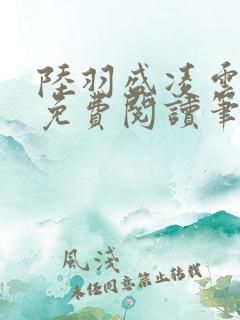 陸羽盛凌雲
免費閱讀筆
風淺
未經同意禁止轉載